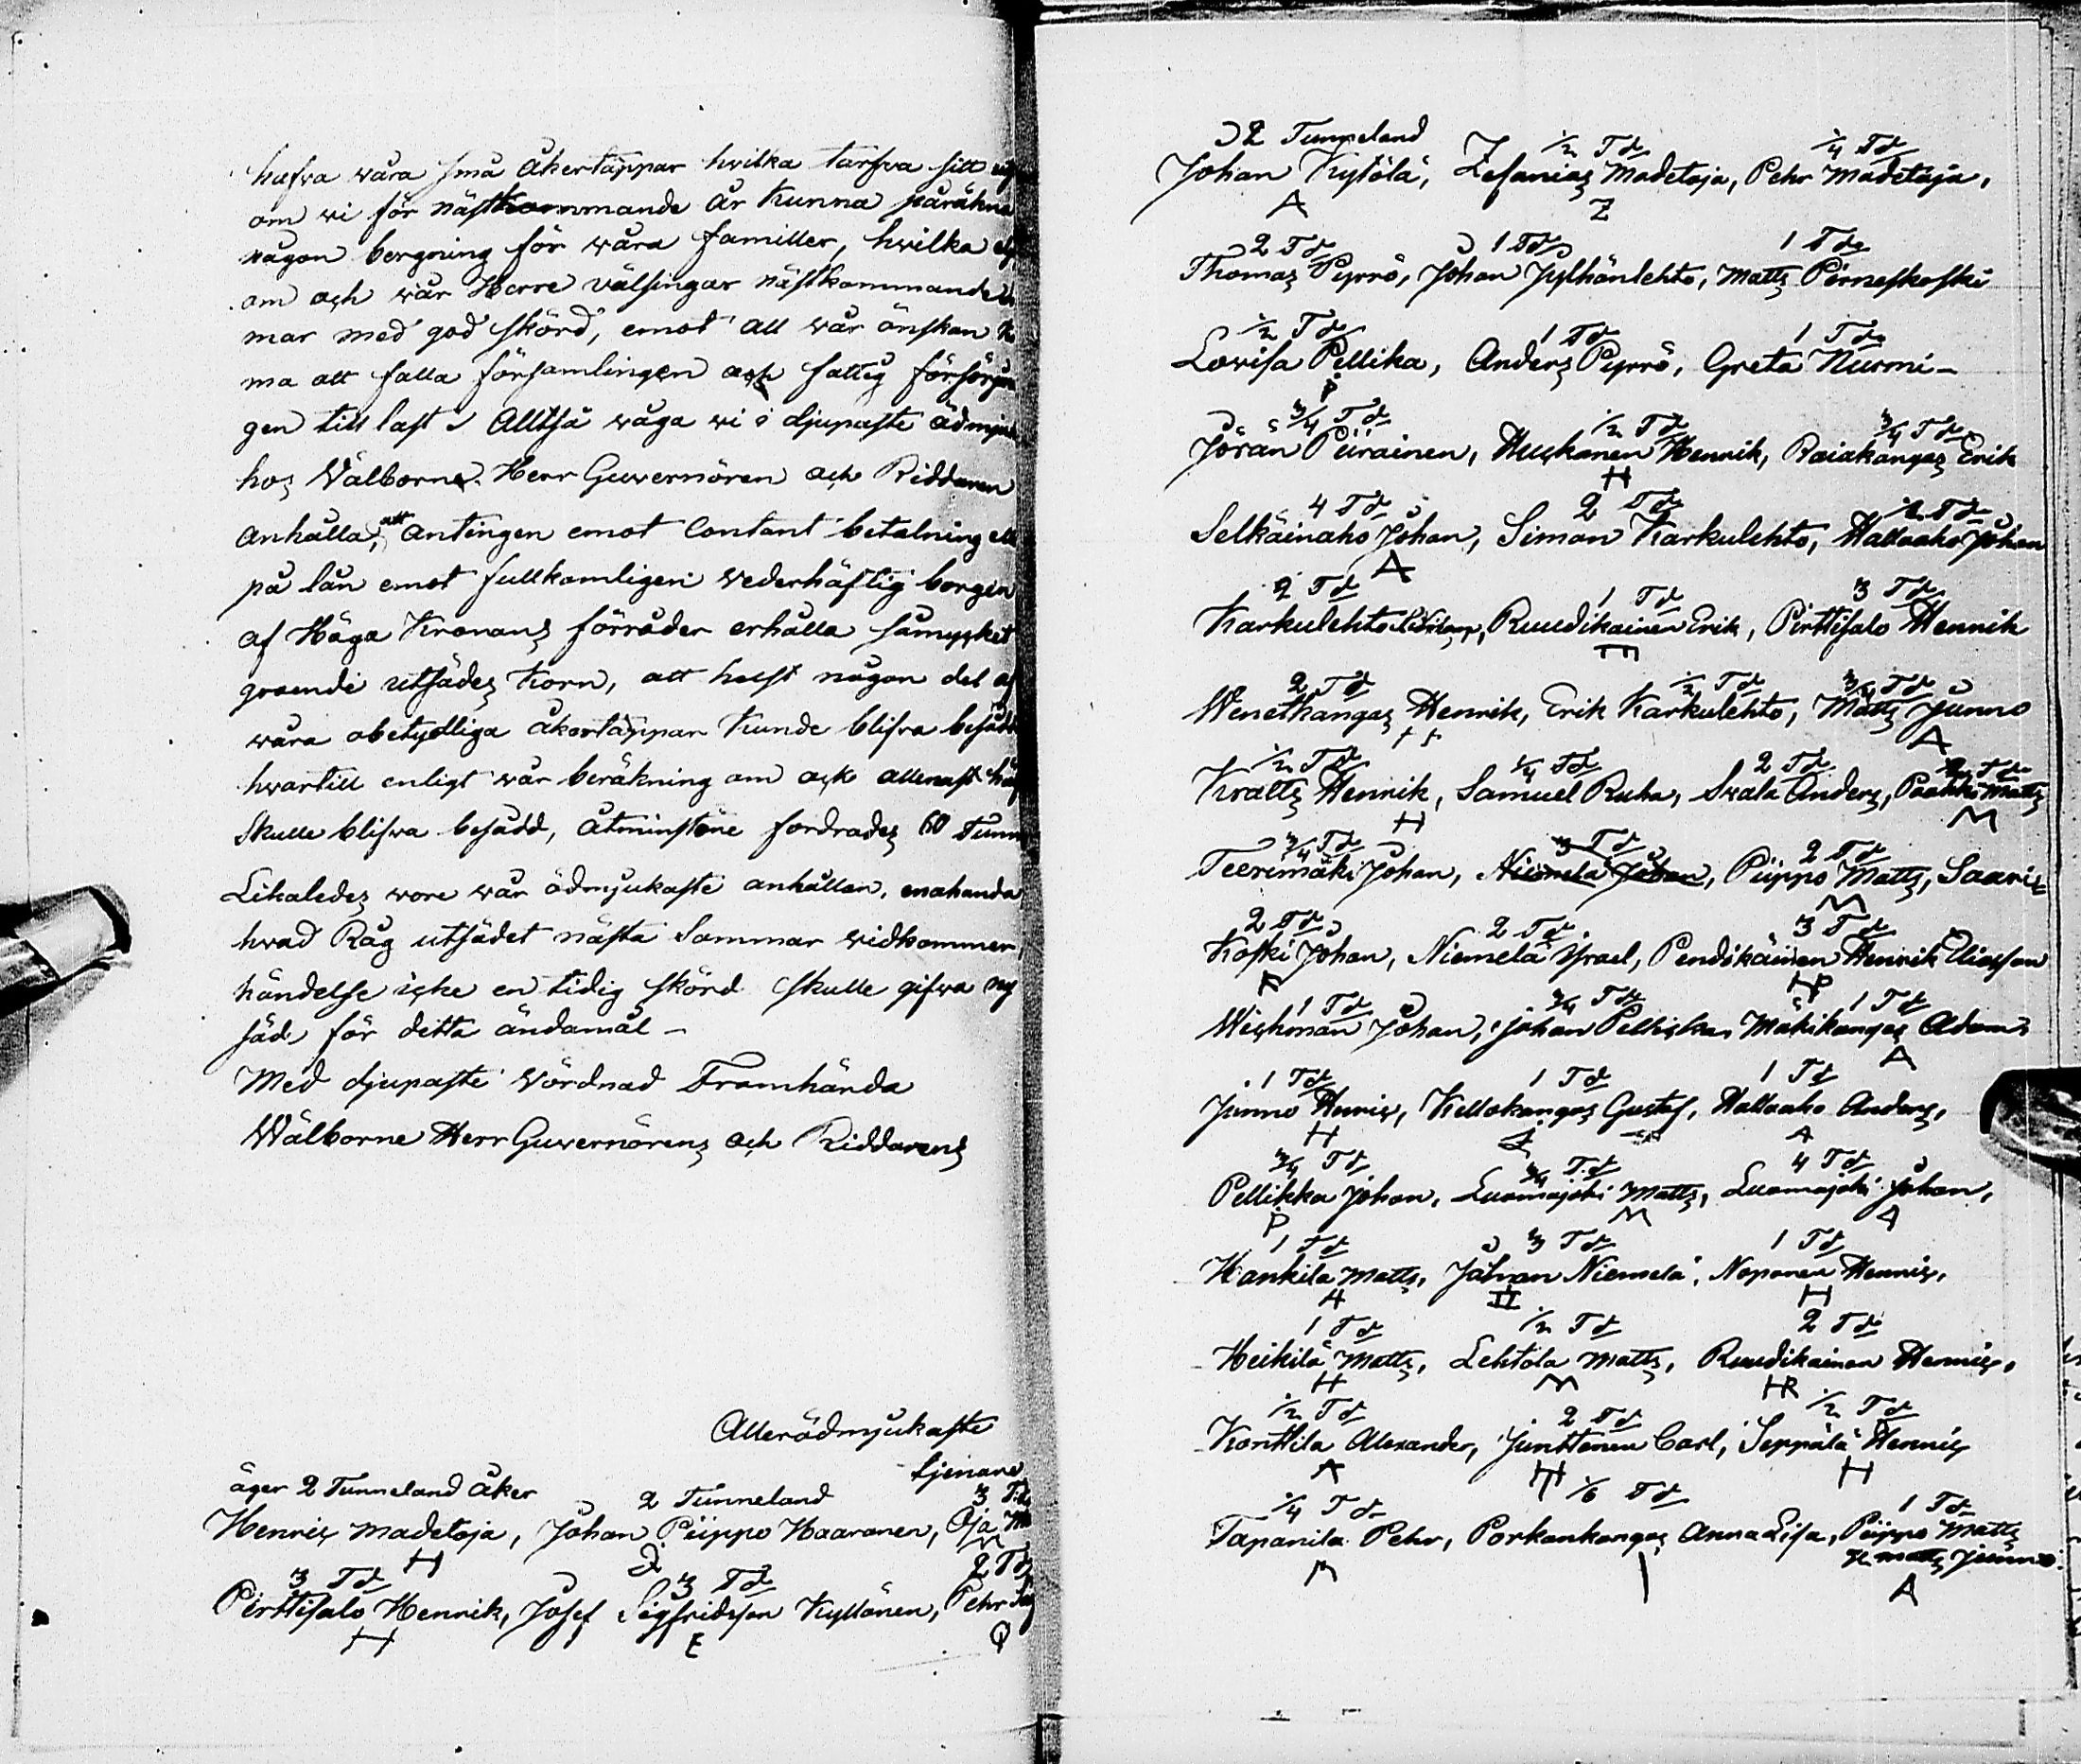 hafva våra små åkertäppar hvilka tarfva sitt
om vi för nästkommande år kunna påräkna
någon bergning för våra familler, hvilka
om och vår Herre välsingar nästkommande
mar med god skörd, emot all vår önskan
ma att falla församlingen och fattig försörjn
gen till last. Alltså våga vi i djupaste ödmju
hos Välborne Herr Guvernören och Riddaren
anhålla, att antingen emot Contant betalning ell
på lån emot fullkomligen vederhäftig borgen
af Höga Kronans förråder erhålla såmycket
groende utsädes korn, att helst någon del af
våra obetydliga åkertäppar kunde blifva besådd
hvartill enligt vår beräkning om ock allenast
skulle blifva besådd, åtminstone fordrades 60 Tunn
Likaledes vore vår ödmjukaste anhållan, enahanda
hvad Råg utsädet nästa Sommar vidkommer,
händelse icke en tidig skörd skulle gifva ny
säd för detta ändamål –
Med djupaste vördnad Framhärda
Wälborne Herr Guvernörens och Riddarens
Allerödmjukaste
tjenare
äger 2 Tunneland åker 2 Tunneland 3 Td
Henric Madetoja, Johan Piippo Haaranen, Oja
H M
3 Td 3 Td 2 Td
Pirttisalo Henrik, Josef Sigfridsson Kyllönen, Pehr
H E
2 Tunneland 1/2 Td 1/4 Td
Johan Kytölä, Zefanias Madetoja, Pehr Madetoja,
A Z
2 Td 1 Td 1 Td
Thomas Pyrrö, Johan Jylhänlehto, Matts Pirneskoski
1/2 Td 1 Td 1 Td
Lovisa Pellika, Anders Pyrrö, Greta Nurmi –
P
3/4 Td 1/2 Td 3/4 Td
Jöran Piirainen, Huskonen Henrik, Raiakangas Erik
H
4 Td 2 Td 1/2 Td
Selkäinaho Johan, Simon Karkulehto, Hallaaho Johan
A
2 Td 1 Td 3 Td
Karkulehto, Ruudikainen Erik, Pirttisalo Henrik
2 Td 1/2 Td 3/4 Td
Wenetkangas Henrik, Erik Karkulehto, Matts Junno
H A
1/2 Td 1/4 Td 2 Td 2 Td
Kratts Henrik, Samuel Ruha, Svala Anders, Paakki Matts
H M
3/4 Td 3 Td 2 Td
Teerimäki Johan, Niemelä Johan, Piippo Matts, Saari
M
2 Td 2 Td 3 Td
Koski Johan, Niemelä Israel, Pendikäinen Henrik Eliasson
HP
1 Td 3/4 Td 1 Td
Wichman Johan, Johan Pellicka, Mäkikangas Adam,
A
1 Td 1 Td 1 Td
Junno Henric, Kellokangas Gustaf, Hallaaho Anders,
H A
3/4 Td 3/4 Td 4 Td
Pellikka Johan, Luomajoki Matts, Luomajoki Johan,
P M A
1 Td 3 Td 1 Td
Hankila Matts, Johan Niemelä, Noponen Henric,
H II H
1 Td 1/2 Td 2 Td
Heikilä Matts, Lehtola Matts, Ruudikainen Henric,
H M HR
1/2 Td 2 Td 1/2 Td
Konttila Alexander, Junttonen Carl, Seppälä Henric
A H
1/4 Td 1/6 Td 1 Td
Tapanila Pehr, Porkankangas Anna Lisa, Piippo Matts
Matts Junno
A